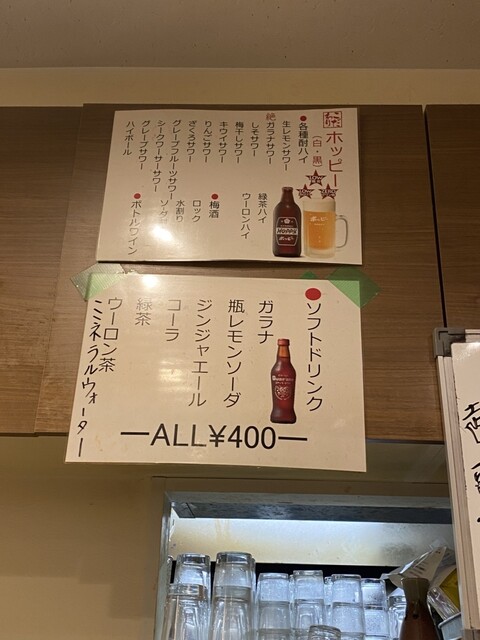 ホッピー
（白・黒）
●各種酎ハイ
生レモンサワー
絶 ガラナサワー
しそサワー
梅干しサワー
キウイサワー
りんごサワー
ざくろサワー
グレープフルーツサワー
シークワーサーサワー
グレープサワー
ハイボール
緑茶ハイ
ウーロンハイ
●梅酒
ロック
水割り
ソーダ
●ボトルワイン
HOPPY
ホッピー
●ソフトドリンク
ガラナ
瓶レモンソーダ
ジンジャエール
コーラ
緑茶
ウーロン茶
ミネラルウォーター
ーALL¥400ー